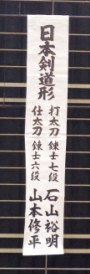 日本剣道形
打太刀 錬士七段 石山裕明
仕太刀 錬士六段 山本修平